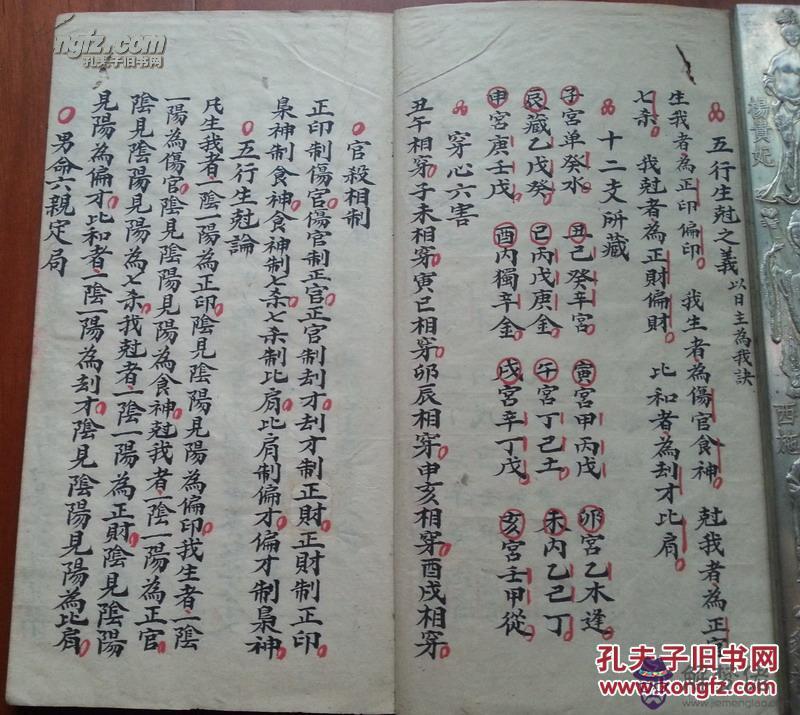 五行生尅之義 以日主為我訣
生我者為正印偏印 我生者為傷官食神 尅我者為正官
七杀 我尅者為正財偏財 比和者為刦才比肩
十二支所藏
子宮单癸水 丑己癸辛宮 寅宮甲丙戊 卯宮乙木逢
辰藏乙戊癸 巳丙戊庚金 午宮丁己土 未丙乙己丁
申宮庚壬戊 酉丙獨辛金 戌宮辛丁戊 亥宮壬甲從
穿心六害
丑午相穿子未相穿寅巳相穿卯辰相穿申亥相穿酉戌相穿
官殺相制
正印制傷官傷官制正官正官制刦才刦才制正財正財制正印
梟神制食神食神制七杀七杀制比肩比肩制偏才偏才制梟神
五行生尅論
凡生我者一陰一陽為正印陰見陰陽見陽為偏印我生者一陰
一陽為傷官陰見陰陽見陽為食神尅我者一陰一陽為正官
陰見陰陽見陽為七杀我尅者一陰一陽為正財陰見陰陽
見陽為偏才比和者一陰一陽為刦才陰見陰陽見陽為比肩
男命六親定局
楊貴妃
西施
kongfz.com
孔夫子旧书网
孔夫子旧书网
www.kongfz.com
www.jiemengla